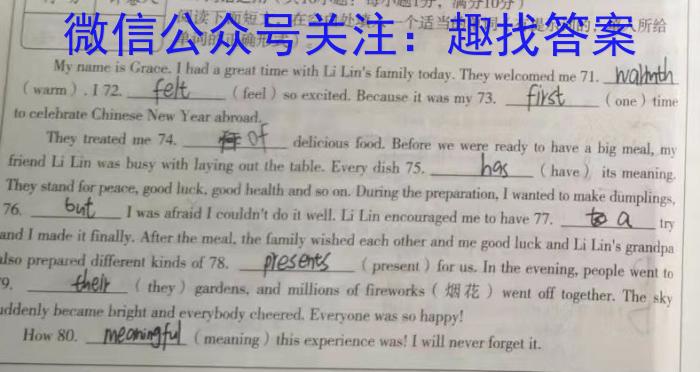 微信公众号关注：趣找答案
My name is Grace. I had a great time with Li Lin's family today. They welcomed me 71. warmth
( warm ) . I 72. felt ( feel ) so excited. Because it was my 73. first ( one ) time
to celebrate Chinese New Year abroad.
They treated me 74. of delicious food. Before we were ready to have a big meal, my
friend Li Lin was busy with laying out the table. Every dish 75. has ( have ) its meaning.
They stand for peace, good luck, good health and so on. During the preparation, I wanted to make dumplings,
76. but I was afraid I couldn't do it well. Li Lin encouraged me to have 77. a try
and I made it finally. After the meal, the family wished each other and me good luck and Li Lin's grandpa
also prepared different kinds of 78. presents ( present ) for us. In the evening, people went to
9. their ( they ) gardens, and millions of fireworks ( 烟花 ) went off together. The sky
uddenly became bright and everybody cheered. Everyone was so happy!
How 80. meaningful ( meaning ) this experience was! I will never forget it.